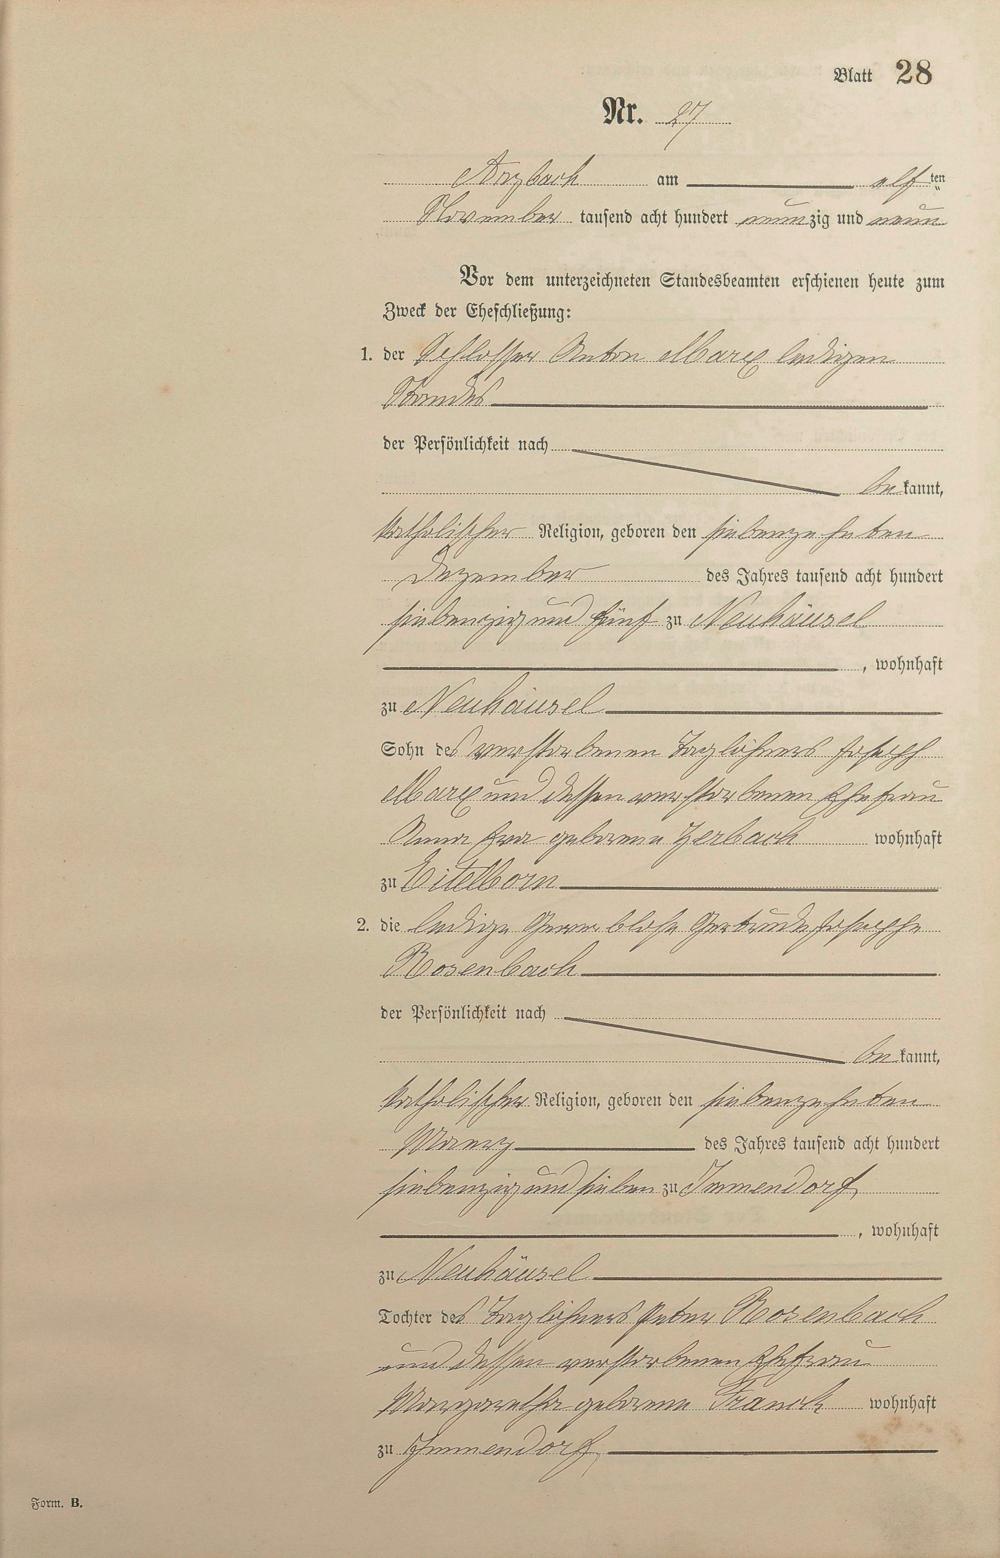 Blatt 28
Nr. 27
Arzbach am elften
November tausend acht hundert neunzig und neun
Vor dem unterzeichneten Standesbeamten erschienen heute zum
Zweck der Eheschließung:
1. der Schlosser Anton Marx ledigen
Standes
der Persönlichkeit nach
bekannt,
katholischer Religion, geboren den siebenzehnten
Dezember des Jahres tausend acht hundert
siebenzig und fünf zu Neuhäusel
, wohnhaft
zu Neuhäusel
Sohn des verstorbenen Taglöhners Joseph
Marx und dessen verstorbenen Ehefrau
Anna Eva geborene Zerbach wohnhaft
zu Eitelborn
2. die ledige Gewerblose Gertrude Josephe
Rosenbach
der Persönlichkeit nach
bekannt,
katholischer Religion, geboren den siebenzehnten
Maerz des Jahres tausend acht hundert
siebenzig und sieben zu Immendorf
, wohnhaft
zu Neuhäusel
Tochter des Taglöhners Peter Rosenbach
und dessen verstorbenen Ehefrau
Margaretha geborene Franck wohnhaft
zu Immendorf
Form. B.